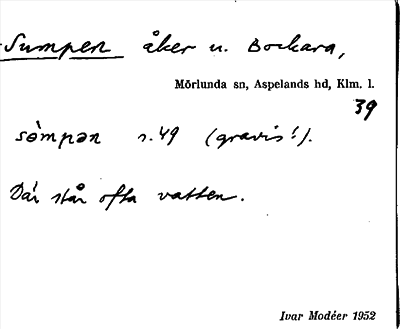 Sumpen åker u. Bockara,
Mörlunda sn, Aspelands hd, Klm. l.
39
sòmpən s.49 (gravis!).
Där står ofta vatten.
Ivar Modéer 1952